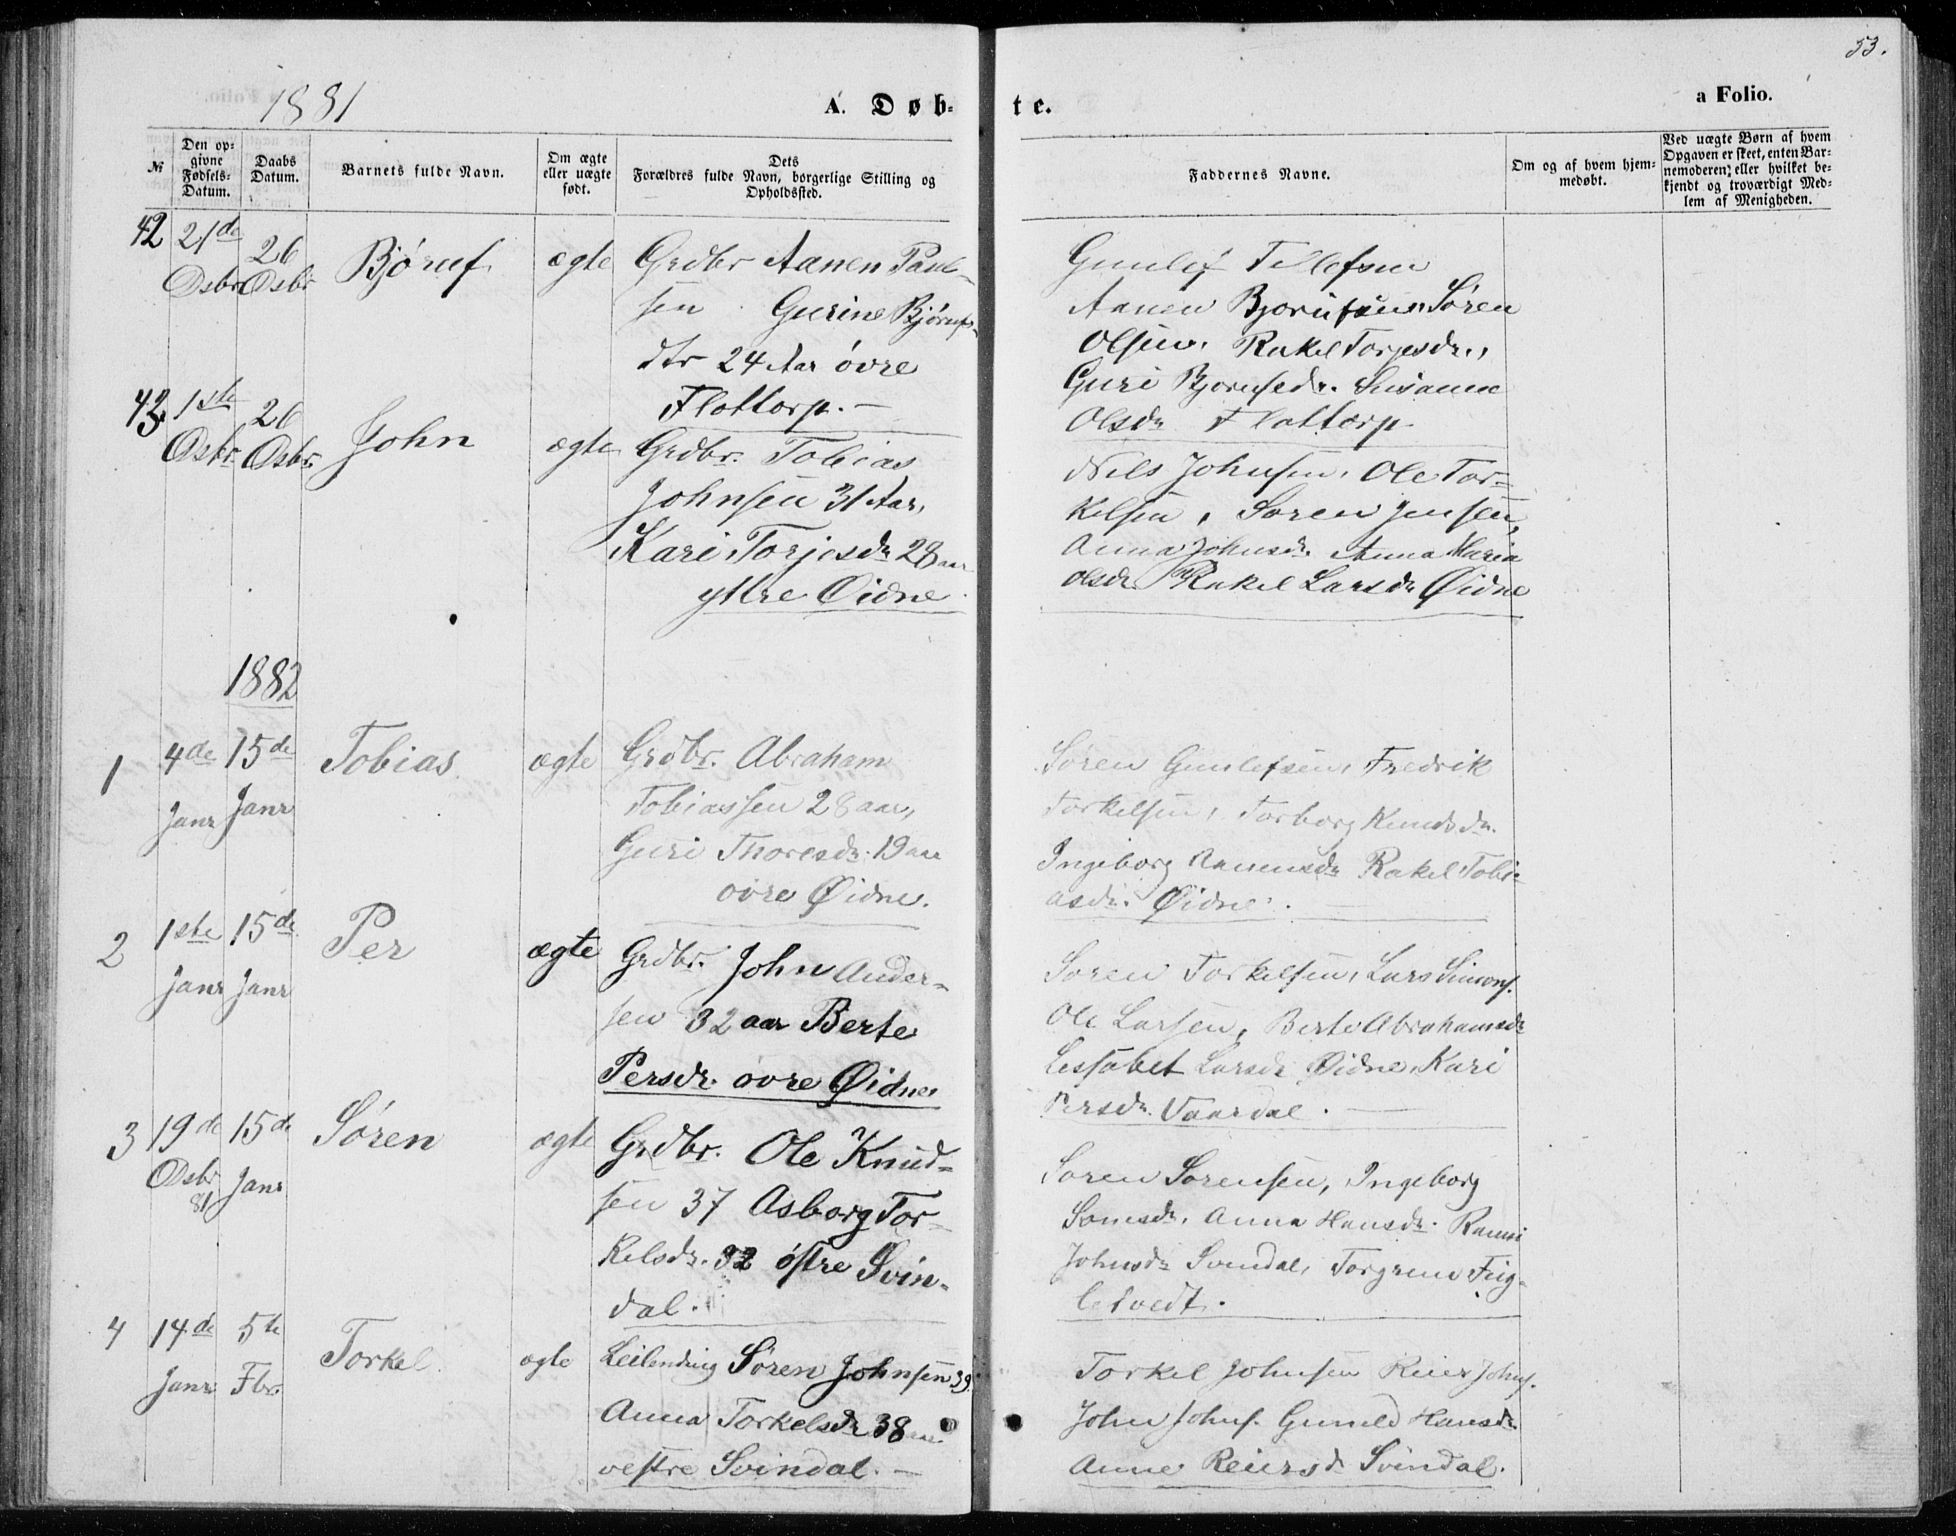 53.
1881
A. Døb-
te.
a Folio.
№
Den op-
givne
Fødsels-
Datum.
Daabs
Datum.
Barnets fulde Navn.
Om ægte
eller uægte
født.
Dets
Forældres fulde Navn, borgerlige Stilling og
Opholdssted.
Faddernes Navne.
Om og af hvem hjem-
medøbt.
Ved uægte Børn af hvem
Opgaven er skeet, enten Bar-
nemoderen, eller hvilket be-
kjendt og troværdigt Med-
lem af Menigheden.
42 21de Dsbr 26 Dsbr Bjørnf ægte Grdbr Aanen Paul-
sen Gurine Bjørnfs-
dtr 24 Aar øvre
Flottorp. —
Gunlef Tellefsen
Aanen Bjornfsen Søren
Olsen, Rakel Torjesdr.,
Guri Bjornfsdr. Susanne
Olsdr Flottorp
43 1ste Dsbr. 26 Dsbr. John ægte Grdbr. Tobias
Johnsen 31 Aar,
Kari Torjesdr 28 aar
yttre Øidne
Nils Johnsen, Ole Tor-
kelsen, Soren Jensen,
Anna Johnsdr. Anna Maria
Olsdr Rakel Larsdr Øidne
1882
1 4de Janr 15de Janr Tobias ægte Grdbr. Abraham
Tobiassen 28 aar,
Guri Thoresdr. 19 aar
ovre Øidne.
Søren Gunlefsen, Fredrik
Torkelsen, Torborg Knudsdr.
Ingeborg Aanensdr Rakel Tobi-
asdr. Øidne. —
2 1ste Janr 15de Janr Per ægte Grdbr. John Ander-
sen 32 aar Berte
Persdr. ovre Øidne
Soren Torkelsen, Lars Simons.
Ole Larsen, Berte Abrahamsdr
Lessabet Larsdr Øidne, Kari
Persdr. Vaardal. —
3 19de Dsbr 81 15de Janr Søren ægte Grdbr. Ole Knud-
sen 37 Asborg Tor-
kelsdr. 32 østre Svin-
dal.
Soren Sorensen, Ingeborg
Anna Hansdr.
Johnsdr Svindal,
4 14de Janr 5te Fbr. Torkel ægte Leilending Søren Johnsen 39
Anna Torkelsdr 38 aar
vestre Svindal. —
Torkel Johnsen Reier Johns.
John Johns. Gunild Hansdr.
Anne Reiersdr Svindal.